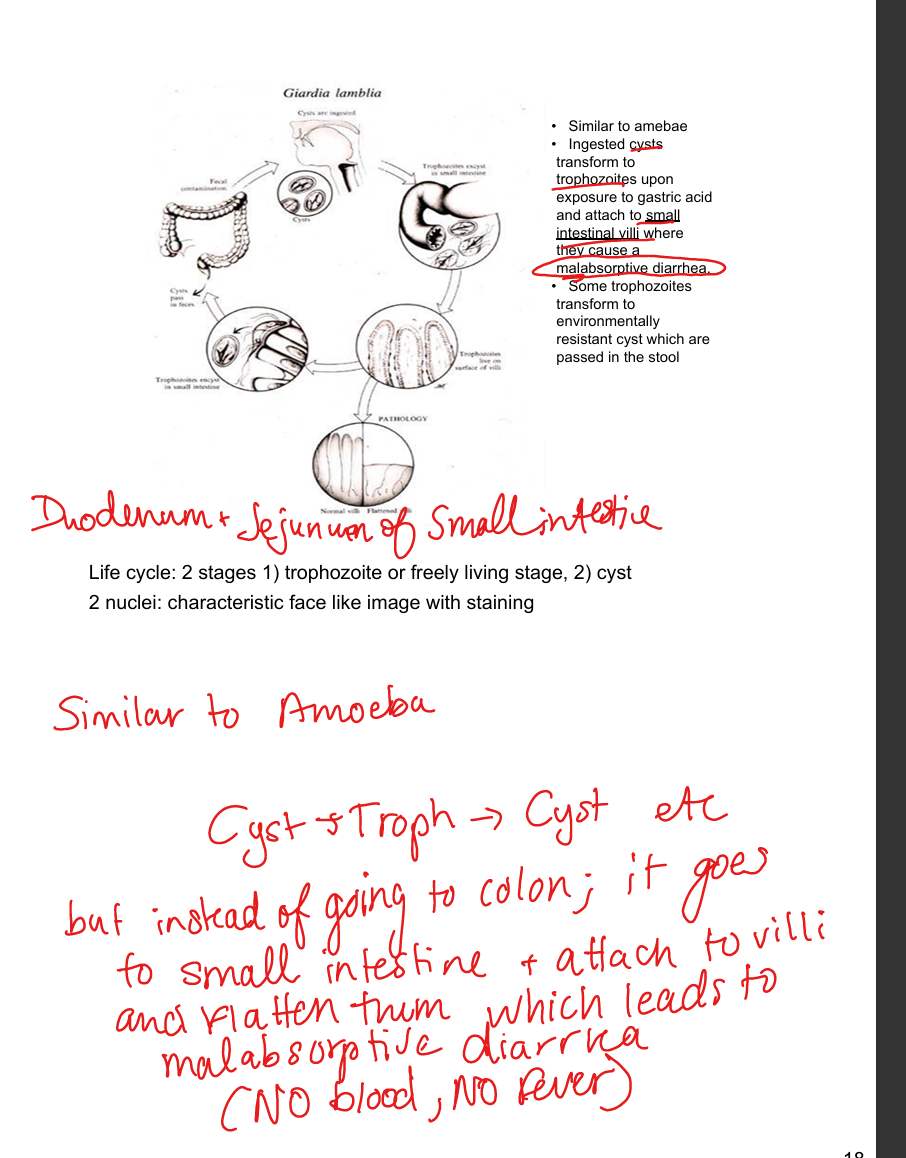 Giardia lamblia
Cysts are ingested
Trophozoites excyst
in small intestine
Fecal
contamination
Cysts
Cysts
pass
in feces
Trophozoites encyst
in small intestine
Trophozoites
live on
surface of villi
PATHOLOGY
Normal villi Flattened
• Similar to amebae
• Ingested cysts
transform to
trophozoites upon
exposure to gastric acid
and attach to small
intestinal villi where
they cause a
malabsorptive diarrhea.
• Some trophozoites
transform to
environmentally
resistant cyst which are
passed in the stool
Duodenum + Jejunum of Small intestine
Life cycle: 2 stages 1) trophozoite or freely living stage, 2) cyst
2 nuclei: characteristic face like image with staining
Similar to Amoeba
Cyst → Troph → Cyst etc
but instead of going to colon; it goes
to small intestine + attach to villi
and flatten them which leads to
malabsorptive diarrhea
(NO blood, NO fever)
18